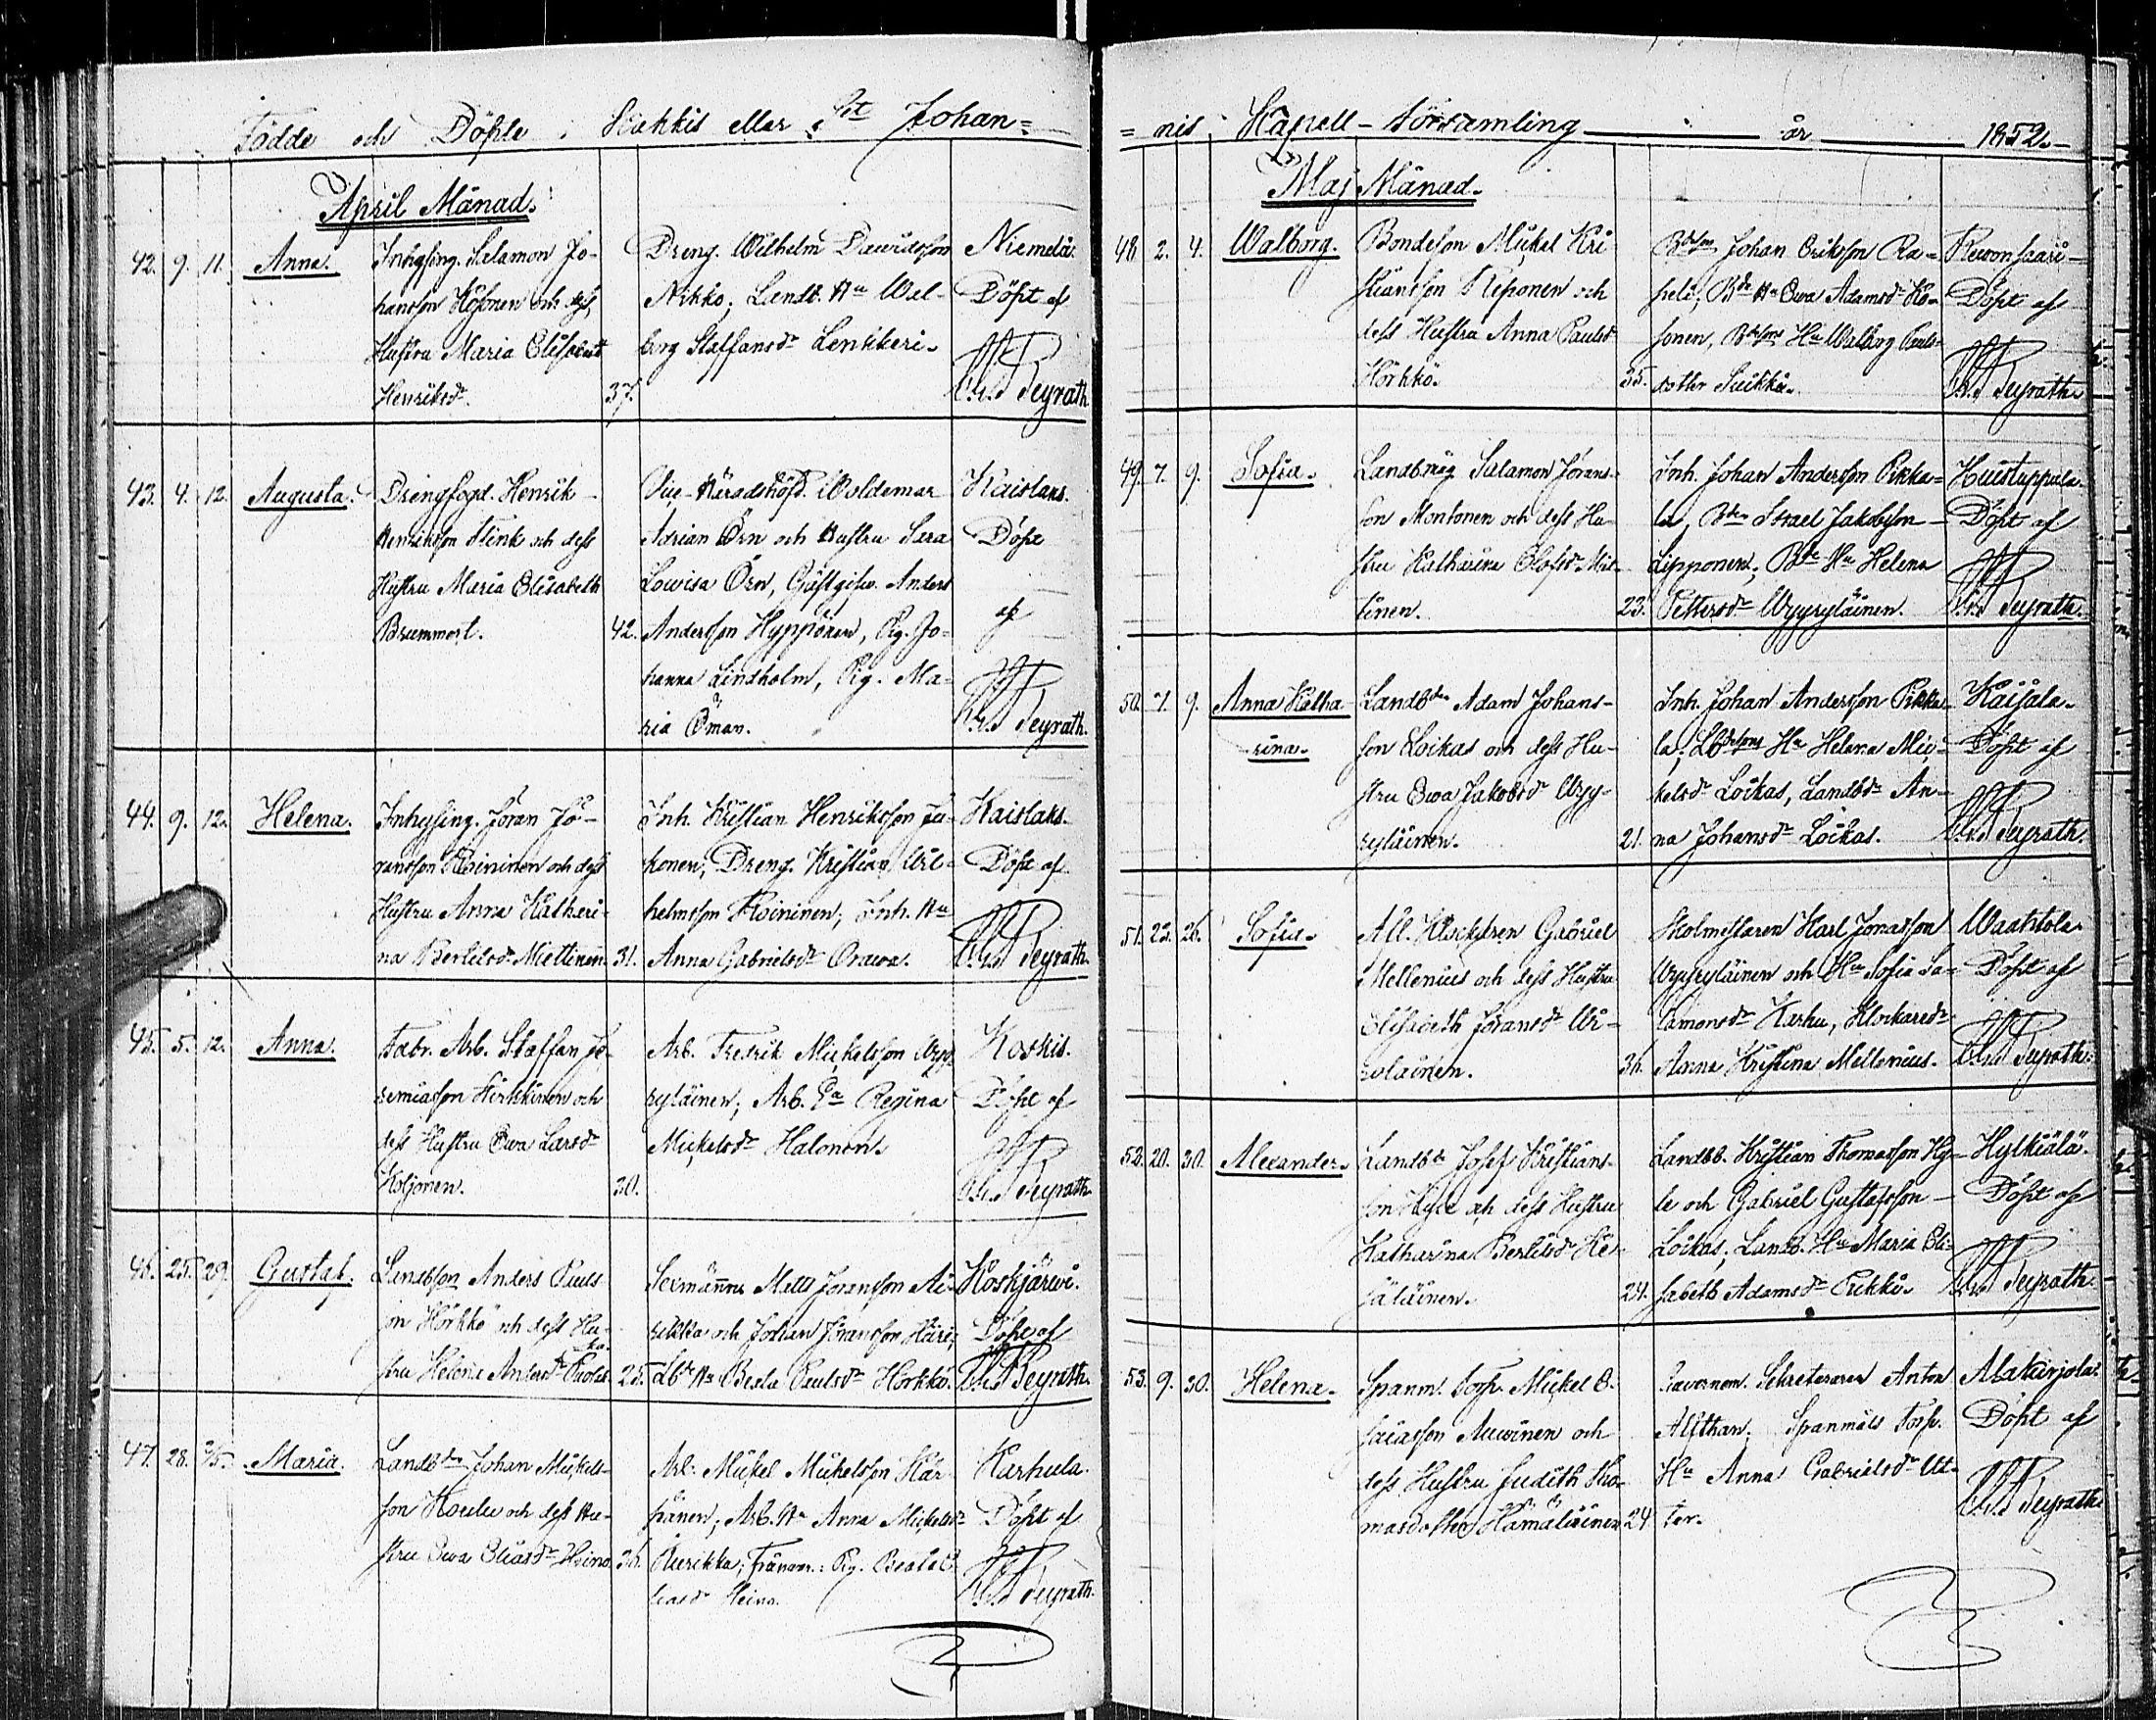 Födde och Döpte i Kakkis eller Sct Johan=
April Månad.
42. 9. 11. Anna. Inhysing. Salamon Jo-
hansson Kosonen och dess
Hustru Maria Elisabeth
Henriksdr. 37.
Dreng. Wilhelm Dawidsson
Nikko; Landb. Hu Wal-
borg Staffansdr Lenkkeri.
Niemelä.
Döpt af
Peyrath.
43. 4. 12. Augusta. Drengfogd. Henrik
Henriksson Flink och dess
Hustru Maria Elisabeth
Brummert. 42.
Vice-Häradshöfd. Woldemar
Adrian Örn och Hustru Sara
Lowisa Örn, Gästgifw. Anders
Andersson Hyppönen, Pig. Jo-
hanna Lindholm, Pig. Ma-
ria Öman.
Kaislaks.
Döpt
af
Peyrath.
44. 9. 12. Helena. Inhysing. Jöran Jö-
ransson Roininen och dess
Hustru Anna Katheri-
na Bertilsdr Miettinen. 31.
Inh. Kristian Henriksson
konen; Dreng. Kristian Wil-
helmsson Roininen; Inh. Hu
Anna Gabrielsdr Orawa.
Kaislaks.
Döpt af
Peyrath.
45. 5. 12. Anna. Fabr. Arb. Staffan Je-
remiasson Hirkkinen och
dess Hustru Ewa Larsdr
Koljonen. 30.
Arb. Fredrik Mickelsson Wyy-
ryläinen; Arb. Ea Regina
Mickelsdr Halonen.
Koskis.
Döpt af
Peyrath.
46. 25. 29. Gustaf. Landbson Anders Pauls-
son Hörkkö och dess Hu-
stru Helena Andersdr 25.
Sexmännen Matts Joransson
rikka och Johan Jöransson
Lbr Hu Beata Paulsdr Hörkkö.
Koskjärwi.
Döpt af
Peyrath.
47. 28. 2/5. Maria. Landbdn Johan Mickels-
son Koulu och dess Hu-
stru Ewa Eliasdr Heino. 36.
Arb. Mickel Mickelsson Kär-
pänen; Arb. Hu Anna Mickelsdr
Aurikka; Frånvar.: Pig. Beata E-
liasdr Heino.
Karhula.
Döpt af
Peyrath.
= nis Kapell-församling år 1852.
Maj Månad.
48. 2. 4. Walborg. Bondeson Mickel Kri-
stiansson Reponen och
dess Hustru Anna Paulsdr
Hörkkö. 35.
Bdeson Johan Eriksson Ra-
peli, Bde Hu Ewa Adamsdr Ko-
sonen, Bdesons Hu Walborg Pauls-
dotter Suikka.
Rewonsaari
Döpt af
Peyrath.
49. 7. 9. Sofia. Landbmåg Salamon Jörans-
son Montonen och dess Hu-
stru Katharina Olofsdr
tinen. 23.
Inh. Johan Andersson Pikka-
la, Bdn Israel Jakobsson
Lipponen; Bde Hu Helena
Pettersdr Wyyryläinen.
Huistuppula.
Döpt af
Peyrath.
50. 7. 9. Anna Katha-
rina. Landbdn Adam Johans-
son Loikas och dess Hu-
stru Ewa Jakobsdr Wyy-
ryläinen. 21.
Inh. Johan Andersson Pikka-
la, Lbdesons Hu Helena Mic-
kelsdr Loikas, Landbdr An-
na Johansdr Loikas.
Kaisala.
Döpt af
Peyrath.
51. 23. 26. Sofia. Afl. Klockaren Gabriel
Mellenius och dess Hustru
Elisabeth Joransdr Wi-
rolainen. 36.
Skolmestaren Karl Jonasson
Wyyryläinen och Hu Sofia Sa-
lamonsdr Karhu, Klockaredr
Anna Kristina Mellenius.
Waahtola.
Döpt af
Peyrath.
52. 20. 30. Alexander. Landbdn Josef Kristians-
son Hyle och dess Hustru
Katharina Bertilsdr Ke-
säläinen. 24.
Landbb. Kristian Thomasson Hy-
le och Gabriel Gustafsson
Loikas; Landb. Hu Maria Eli-
sabeth Adamsdr Pekki.
Hylkiälä.
Döpt af
Peyrath.
53. 9. 30. Helena. Spanm. Torp. Mickel E-
saiasson Auwinen och
dess Hustru Judith Tho-
masdotter Hämäläinen 24
Guvernem. Sekreteraren Anton
Alfthan; Spanmåls Torp.
Hu Anna Gabrielsdr Ut-
ter.
Alakurjola.
Döpt af
Peyrath